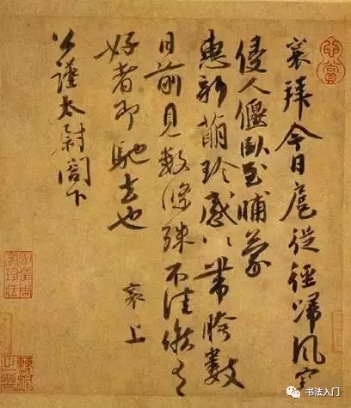 襄拜今日扈從徑歸風寒
侵人偃臥至晡蒙
惠新萌珍感〻帶胯數
日前見數條殊不佳候有
好者即馳去也 襄上
公謹太尉閣下
书法入门